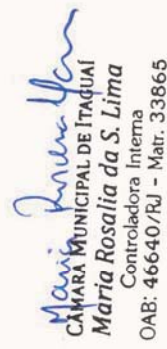 Maria Rosalia
CÂMARA MUNICIPAL DE ITAGUAÍ
Maria Rosalia da S. Lima
Controladora Interna
OAB: 46640/RJ - Matr. 33865